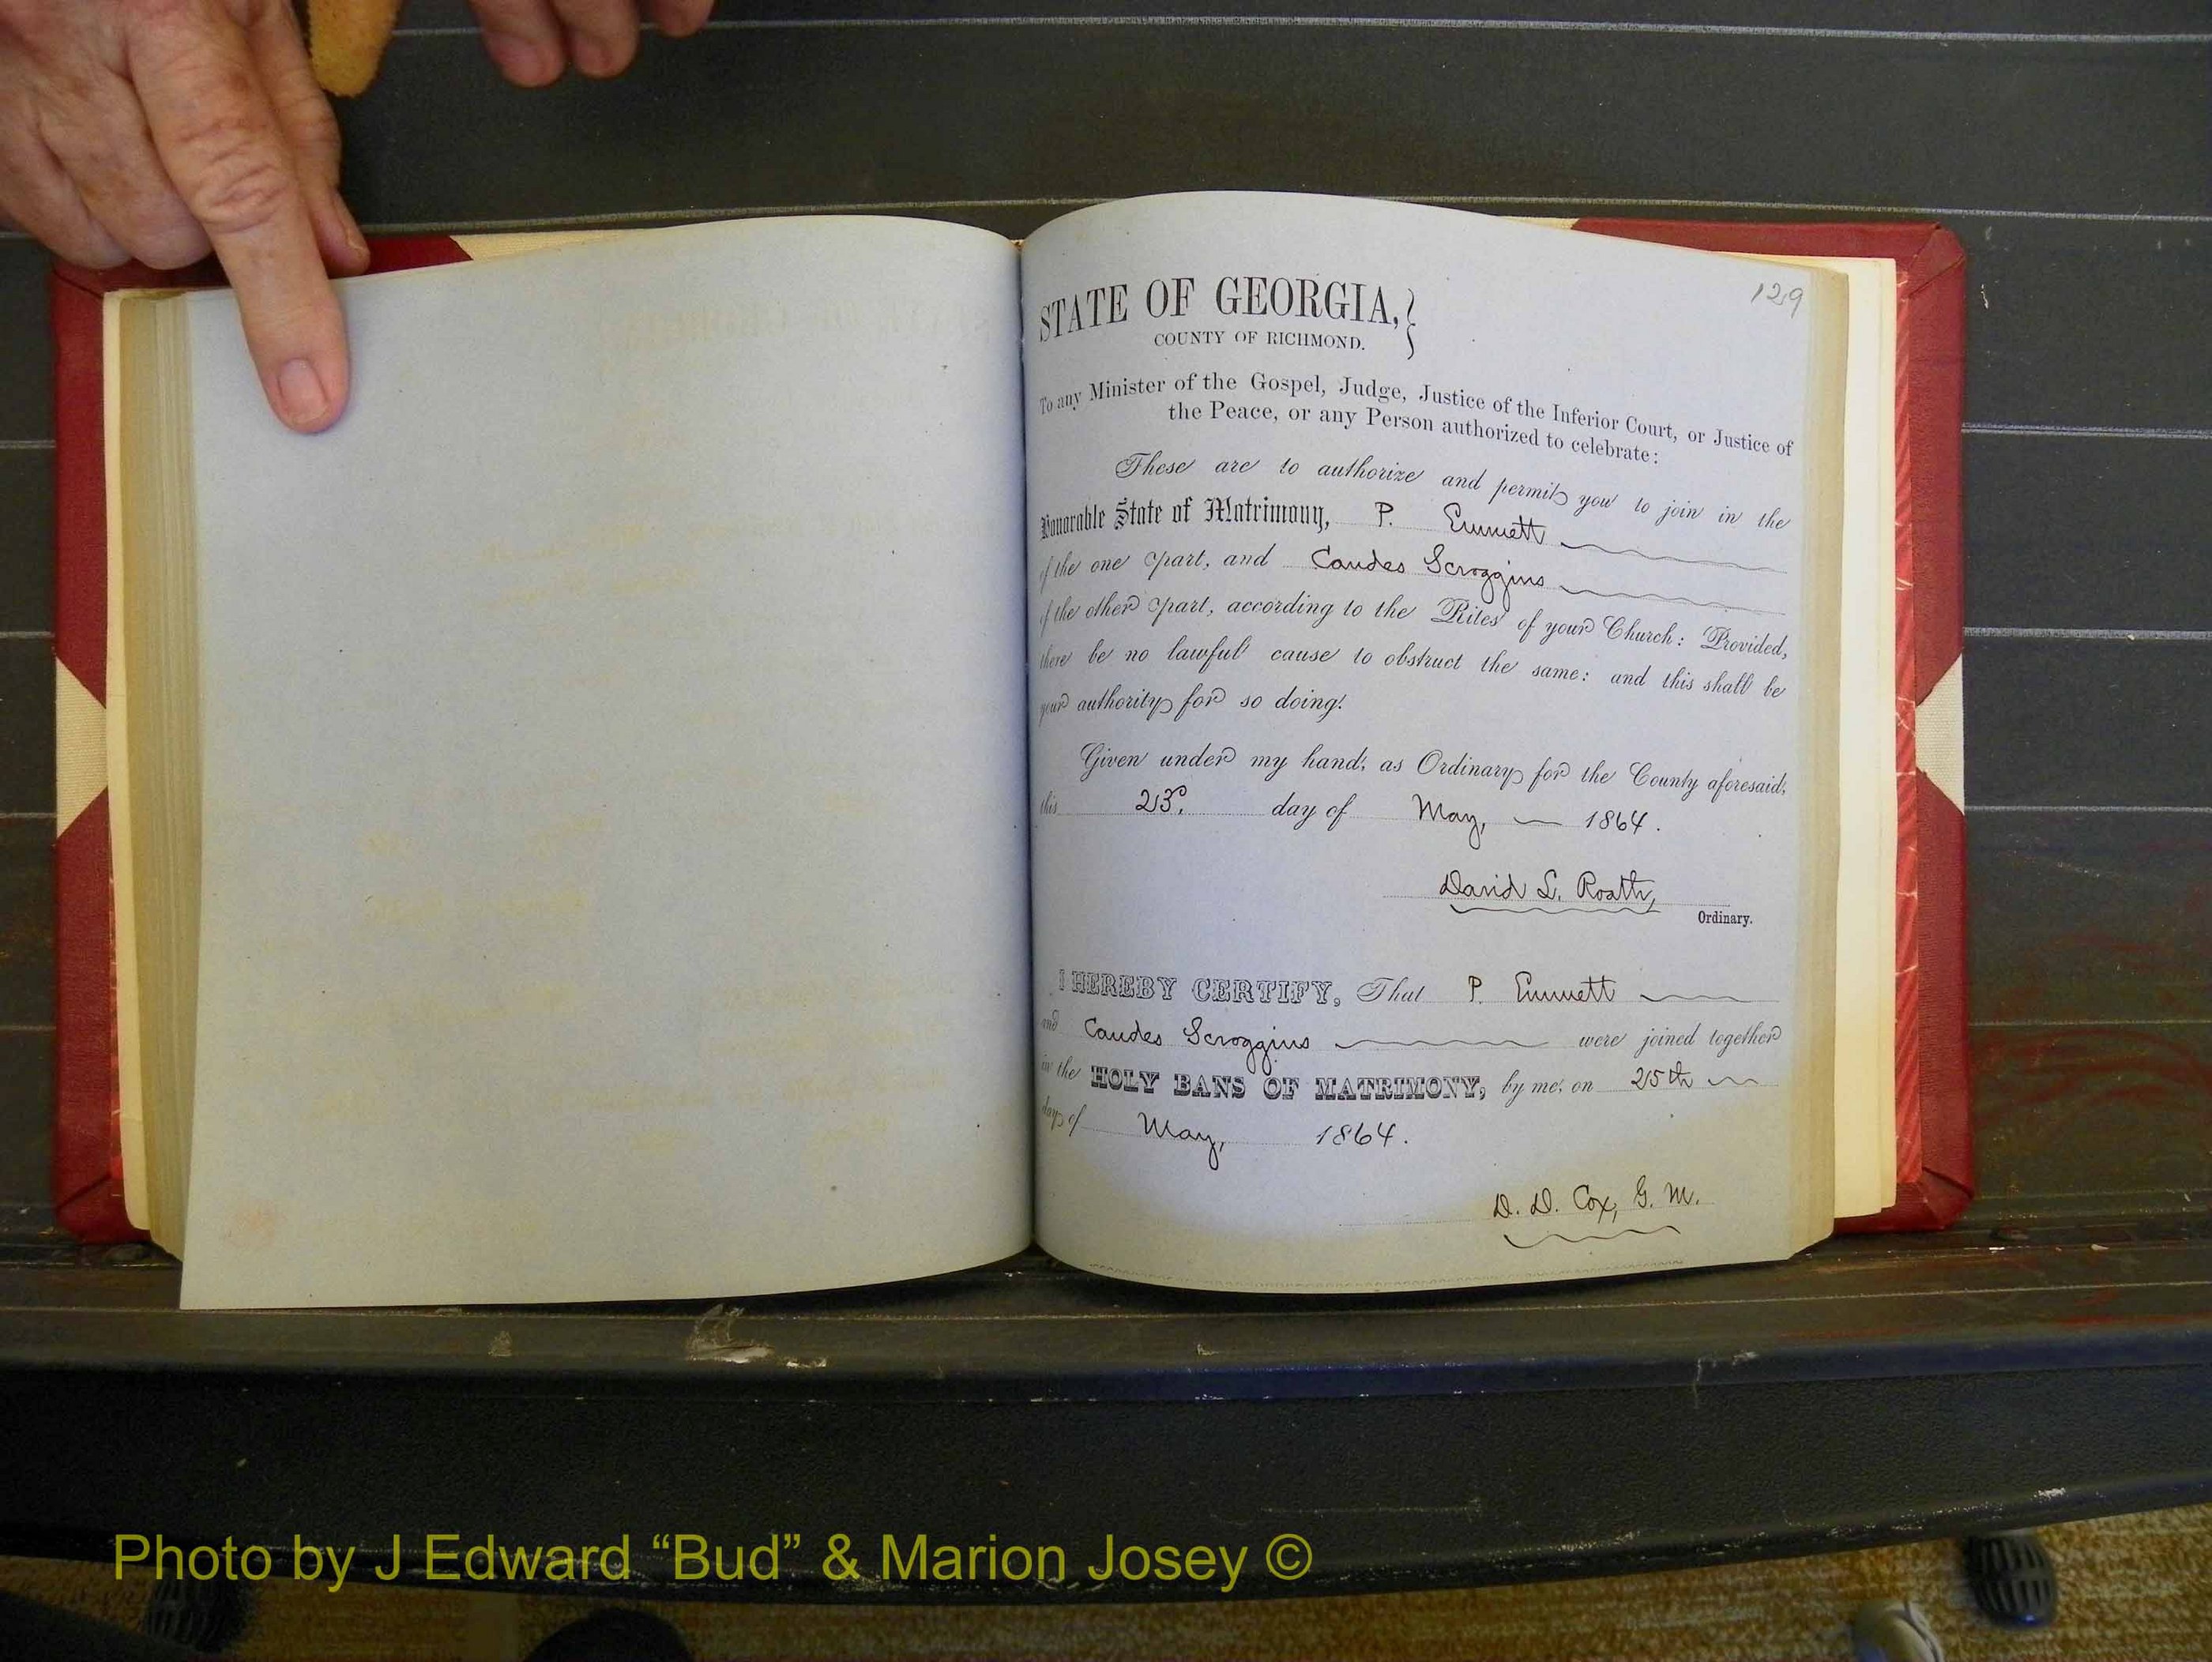 129
STATE OF GEORGIA,}
COUNTY OF RICHMOND.
To any Minister of the Gospel, Judge, Justice of the Inferior Court, or Justice of
the Peace, or any Person authorized to celebrate:
These are to authorize and permit you to join in the
Honorable State of Matrimony, P. Emmett
of the one part, and Candes Scroggins
of the other part, according to the Rites of your Church: Provided,
there be no lawful cause to obstruct the same: and this shall be
your authority for so doing.
Given under my hand, as Ordinary for the County aforesaid,
this 23d. day of May, — 1864.
David L. Roath,
Ordinary.
I HEREBY CERTIFY, That P. Emmett
and Candes Scroggins were joined together
in the HOLY BANS OF MATRIMONY, by me, on 25th
day of May, 1864.
D. D. Cox, G. M.
Photo by J Edward “Bud” & Marion Josey ©